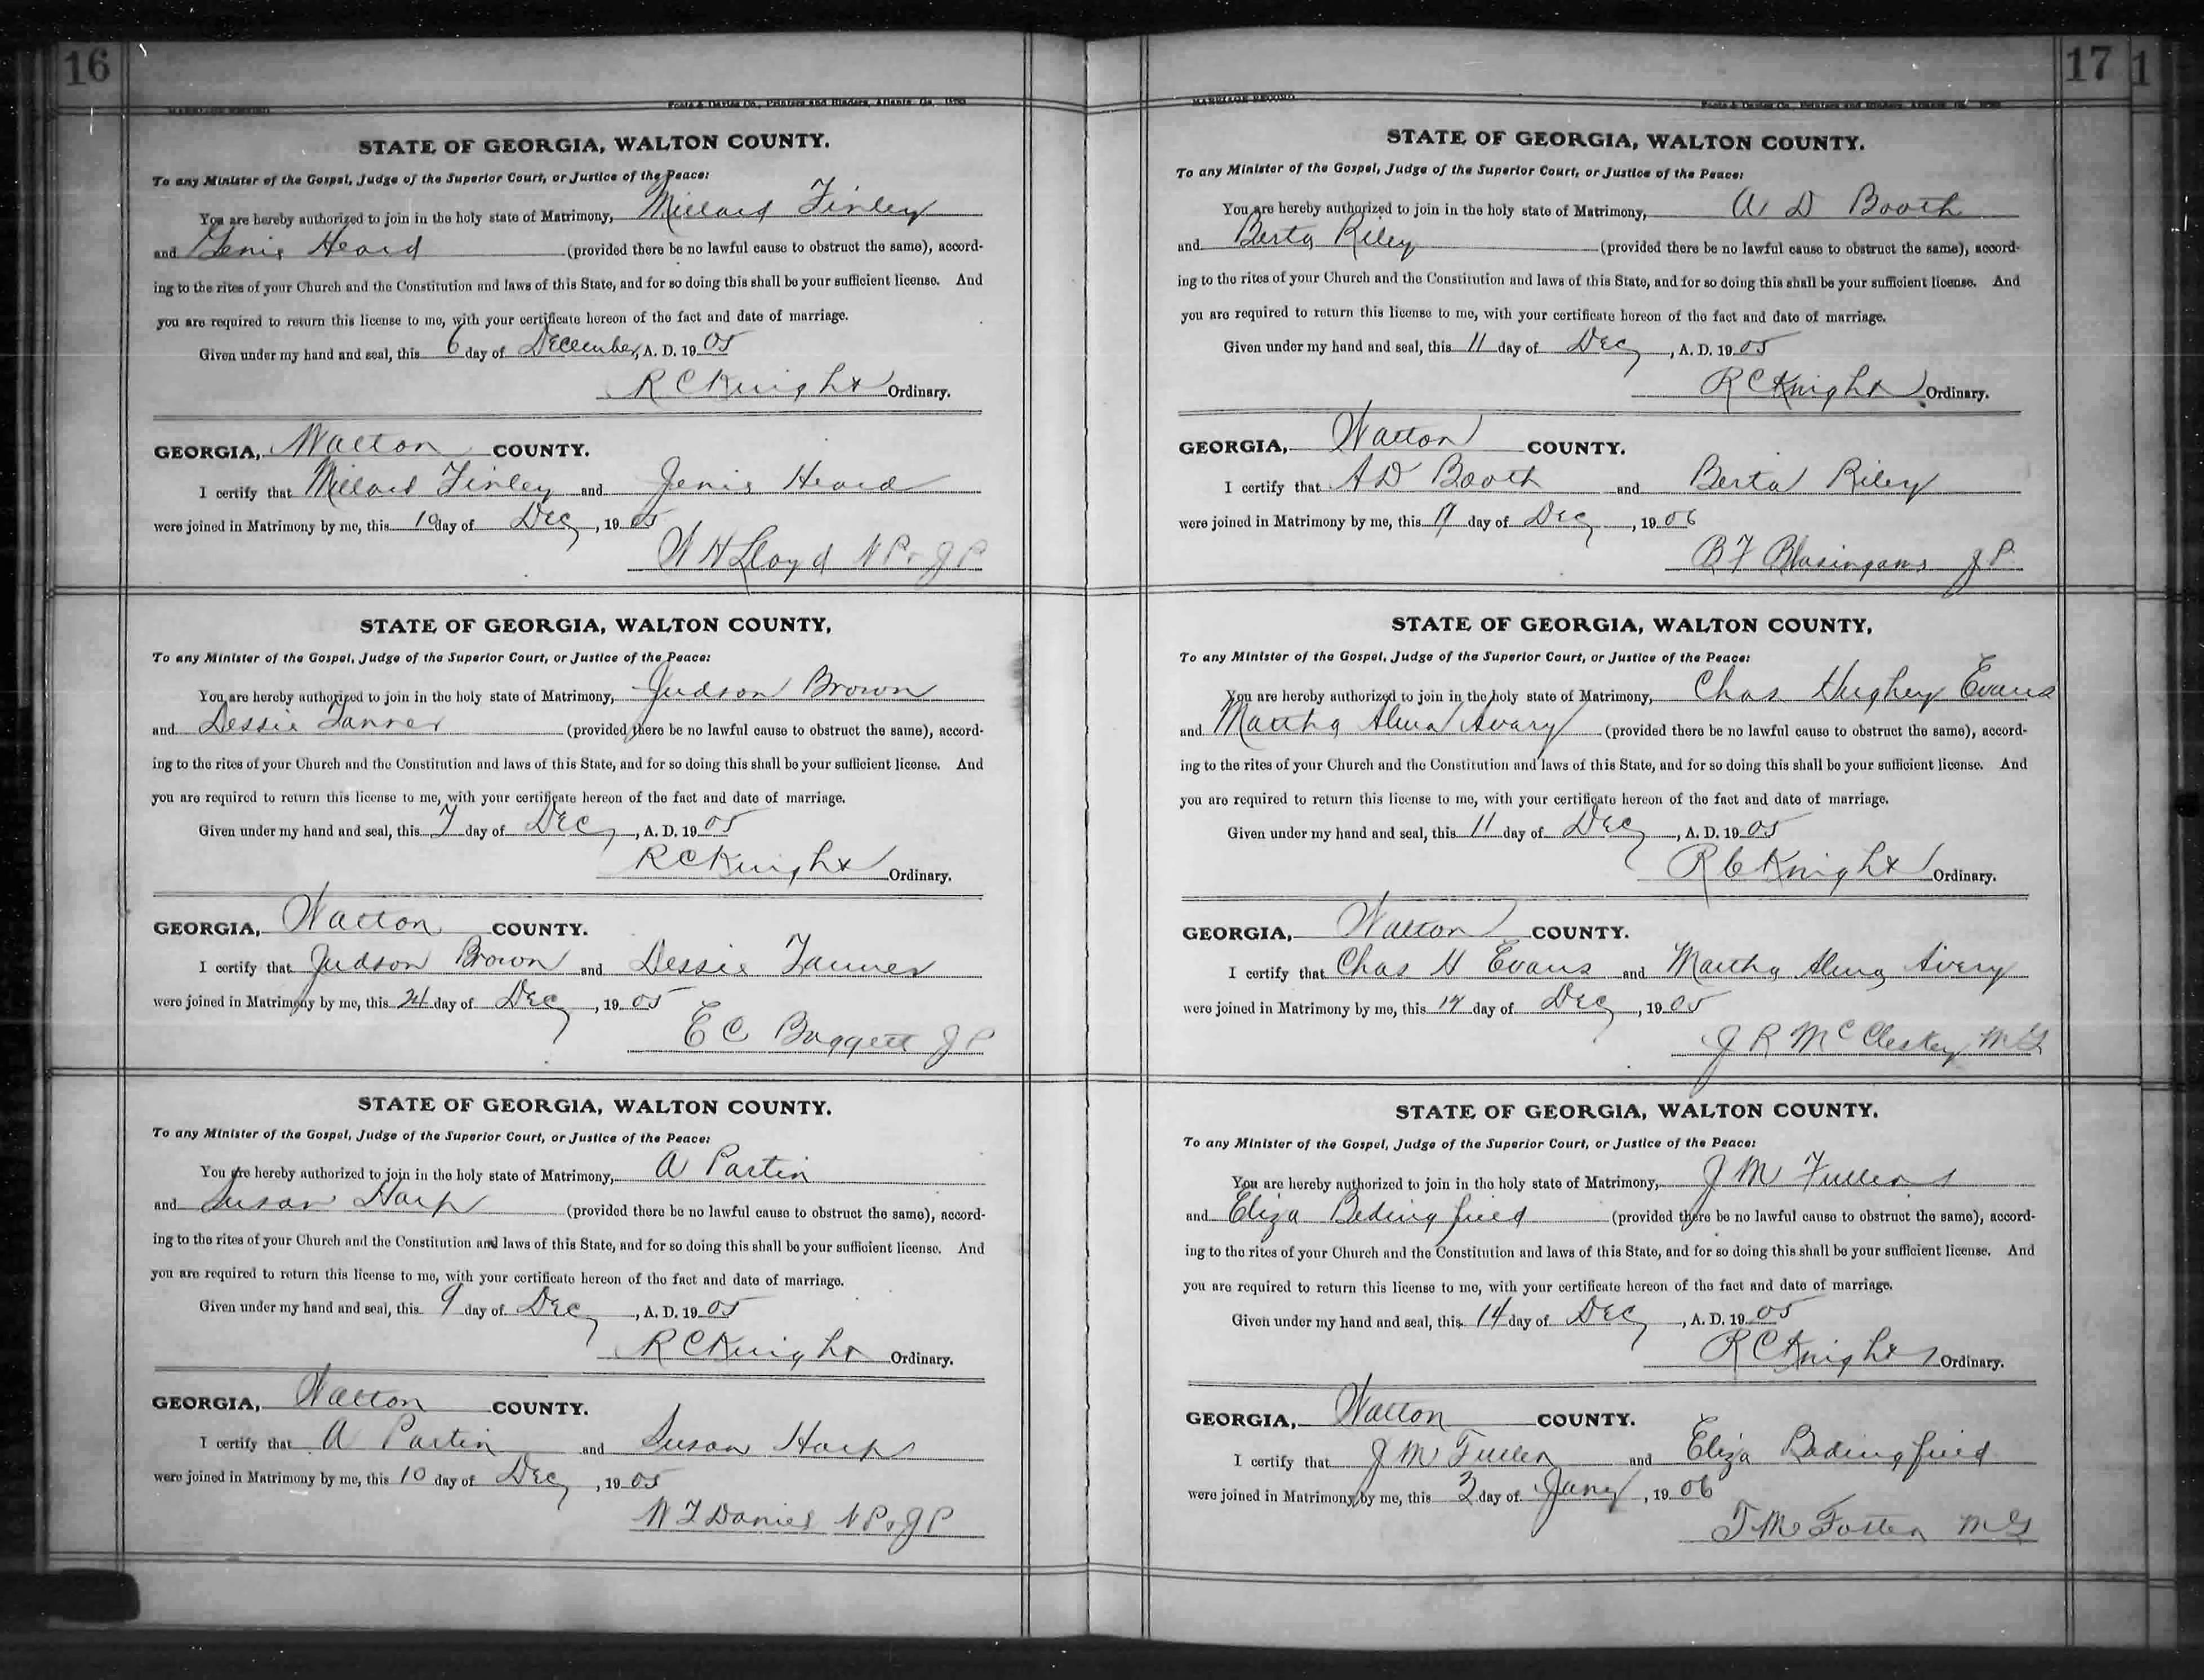 16
MARRIAGE RECORD
Foote & Davies Co., Printers and Binders, Atlanta, Ga.
STATE OF GEORGIA, WALTON COUNTY.
To any Minister of the Gospel, Judge of the Superior Court, or Justice of the Peace:
You are hereby authorized to join in the holy state of Matrimony, Millard Finley
and Jenie Heard (provided there be no lawful cause to obstruct the same), accord-
ing to the rites of your Church and the Constitution and laws of this State, and for so doing this shall be your sufficient license. And
you are required to return this license to me, with your certificate hereon of the fact and date of marriage.
Given under my hand and seal, this 6 day of December, A. D. 19 05
R C Knight Ordinary.
GEORGIA, Walton COUNTY.
I certify that Millard Finley and Jenie Heard
were joined in Matrimony by me, this 10 day of Dec, 19 05
W H Lloyd N P & J P
STATE OF GEORGIA, WALTON COUNTY,
To any Minister of the Gospel, Judge of the Superior Court, or Justice of the Peace:
You are hereby authorized to join in the holy state of Matrimony, Judson Brown
and Dessie Tanner (provided there be no lawful cause to obstruct the same), accord-
ing to the rites of your Church and the Constitution and laws of this State, and for so doing this shall be your sufficient license. And
you are required to return this license to me, with your certificate hereon of the fact and date of marriage.
Given under my hand and seal, this 7 day of Dec, A. D. 19 05
R C Knight Ordinary.
GEORGIA, Walton COUNTY.
I certify that Judson Brown and Dessie Tanner
were joined in Matrimony by me, this 24 day of Dec, 19 05
E C Baggett J P
STATE OF GEORGIA, WALTON COUNTY.
To any Minister of the Gospel, Judge of the Superior Court, or Justice of the Peace:
You are hereby authorized to join in the holy state of Matrimony, A Partin
and Susan Harp (provided there be no lawful cause to obstruct the same), accord-
ing to the rites of your Church and the Constitution and laws of this State, and for so doing this shall be your sufficient license. And
you are required to return this license to me, with your certificate hereon of the fact and date of marriage.
Given under my hand and seal, this 9 day of Dec, A. D. 19 05
R C Knight Ordinary.
GEORGIA, Walton COUNTY.
I certify that A Partin and Susan Harp
were joined in Matrimony by me, this 10 day of Dec, 19 05
W T Daniel N P & J P
17 1
MARRIAGE RECORD
Foote & Davies Co., Printers and Binders, Atlanta, Ga.
STATE OF GEORGIA, WALTON COUNTY.
To any Minister of the Gospel, Judge of the Superior Court, or Justice of the Peace:
You are hereby authorized to join in the holy state of Matrimony, A D Booth
and Berta Riley (provided there be no lawful cause to obstruct the same), accord-
ing to the rites of your Church and the Constitution and laws of this State, and for so doing this shall be your sufficient license. And
you are required to return this license to me, with your certificate hereon of the fact and date of marriage.
Given under my hand and seal, this 11 day of Dec, A. D. 19 05
R C Knight Ordinary.
GEORGIA, Walton COUNTY.
I certify that A D Booth and Berta Riley
were joined in Matrimony by me, this 17 day of Dec, 19 06
B F Blasingame J P
STATE OF GEORGIA, WALTON COUNTY,
To any Minister of the Gospel, Judge of the Superior Court, or Justice of the Peace:
You are hereby authorized to join in the holy state of Matrimony, Chas Hughey Evans
and Martha Alma Avary (provided there be no lawful cause to obstruct the same), accord-
ing to the rites of your Church and the Constitution and laws of this State, and for so doing this shall be your sufficient license. And
you are required to return this license to me, with your certificate hereon of the fact and date of marriage.
Given under my hand and seal, this 11 day of Dec, A. D. 19 05
R C Knight Ordinary.
GEORGIA, Walton COUNTY.
I certify that Chas H Evans and Martha Alma Avery
were joined in Matrimony by me, this day of Dec, 19 05
J R McCleskey M G
STATE OF GEORGIA, WALTON COUNTY.
To any Minister of the Gospel, Judge of the Superior Court, or Justice of the Peace:
You are hereby authorized to join in the holy state of Matrimony, J M Fullers
and Eliza Bedingfield (provided there be no lawful cause to obstruct the same), accord-
ing to the rites of your Church and the Constitution and laws of this State, and for so doing this shall be your sufficient license. And
you are required to return this license to me, with your certificate hereon of the fact and date of marriage.
Given under my hand and seal, this 14 day of Dec, A. D. 19 05
R C Knight Ordinary.
GEORGIA, Walton COUNTY.
I certify that J M Fuller and Eliza Bedingfield
were joined in Matrimony by me, this 3 day of Jany, 19 06
T M Foster M G